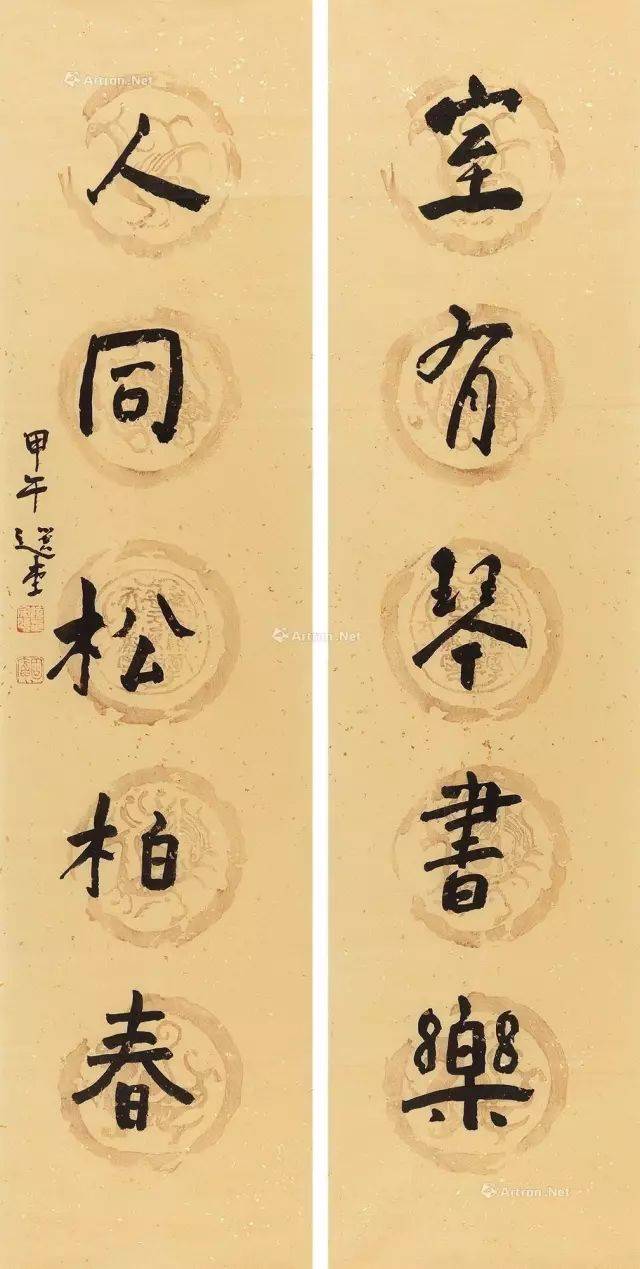 室有琴書樂
人同松柏春
甲午 選堂
Artron.Net
Artron.Net
Artron.Net